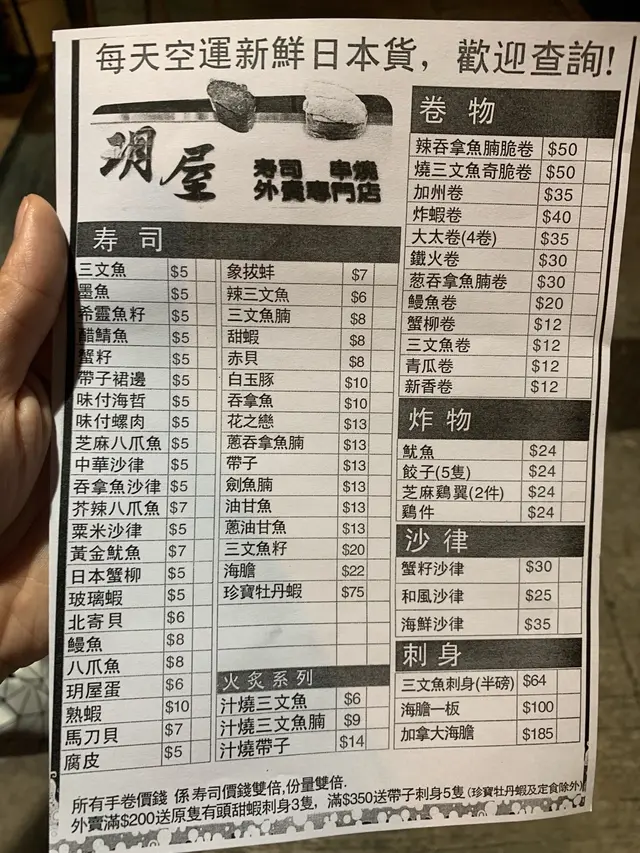 每天空運新鮮日本貨，歡迎查詢!
玥屋
寿司 串燒
外賣專門店
寿司
三文魚 $5
墨魚 $5
希靈魚籽 $5
醋鯖魚 $5
蟹籽 $5
帶子裙邊 $5
味付海哲 $5
味付螺肉 $5
芝麻八爪魚 $5
中華沙律 $5
吞拿魚沙律 $5
芥辣八爪魚 $7
粟米沙律 $5
黃金魷魚 $7
日本蟹柳 $5
玻璃蝦 $5
北寄貝 $6
鰻魚 $8
八爪魚 $8
玥屋蛋 $6
熟蝦 $10
馬刀貝 $7
腐皮 $5
象拔蚌 $7
辣三文魚 $6
三文魚腩 $8
甜蝦 $8
赤貝 $8
白玉豚 $10
吞拿魚 $10
花之戀 $13
蔥吞拿魚腩 $13
帶子 $13
劍魚腩 $13
油甘魚 $13
蔥油甘魚 $13
三文魚籽 $20
海膽 $22
珍寶牡丹蝦 $75
火炙系列
汁燒三文魚 $6
汁燒三文魚腩 $9
汁燒帶子 $14
卷物
辣吞拿魚腩脆卷 $50
燒三文魚奇脆卷 $50
加州卷 $35
炸蝦卷 $40
大太卷(4卷) $35
鐵火卷 $30
葱吞拿魚腩卷 $30
鰻魚卷 $20
蟹柳卷 $12
三文魚卷 $12
青瓜卷 $12
新香卷 $12
炸物
魷魚 $24
餃子(5隻) $24
芝麻鷄翼(2件) $24
鷄件 $24
沙律
蟹籽沙律 $30
和風沙律 $25
海鮮沙律 $35
刺身
三文魚刺身(半磅) $64
海膽一板 $100
加拿大海膽 $185
所有手卷價錢 係寿司價錢雙倍,份量雙倍.
外賣滿$200送原隻有頭甜蝦刺身3隻，滿$350送帶子刺身5隻(珍寶牡丹蝦及定食除外)